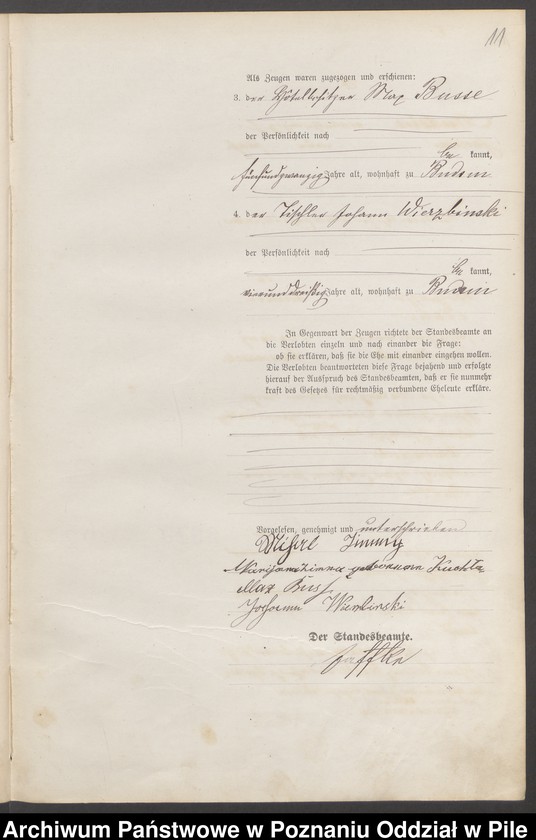 11
Als Zeugen waren zugezogen und erschienen:
3. der Hôtelbesitzer Max Busse
der Persönlichkeit nach
be kannt,
fünfundzwanzig Jahre alt, wohnhaft zu Budsin
4. der Tischler Johann Wierzbinski
der Persönlichkeit nach
be kannt,
vierunddreißig Jahre alt, wohnhaft zu Budsin
In Gegenwart der Zeugen richtete der Standesbeamte an
die Verlobten einzeln und nach einander die Frage:
ob sie erklären, daß sie die Ehe mit einander eingehen wollen.
Die Verlobten beantworteten diese Frage bejahend und erfolgte
hierauf der Ausspruch des Standesbeamten, daß er sie nunmehr
kraft des Gesetzes für rechtmäßig verbundene Eheleute erkläre.
Vorgelesen, genehmigt und unterschrieben
Zimny
Maryanna Zimna geborene Kuchta
Max Busse
Johann Wierzbinski
Der Standesbeamte.
Jaffke
Archiwum Państwowe w Poznaniu Oddział w Pile